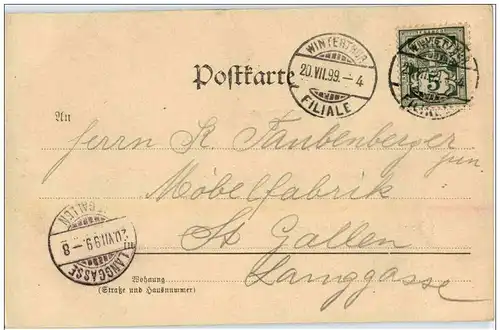 WINTERTHUR
20.VII.99.-4
FILIALE
WINTERTHUR
5
FILIALE
Postkarte
An
Herrn K. Taubenberger
jun.
Möbelfabrik
St Gallen
Langgasse
ST. GALLEN
20.VII.99.-8
LANGGASSE
in
Wohnung
(Straße und Hausnummer)